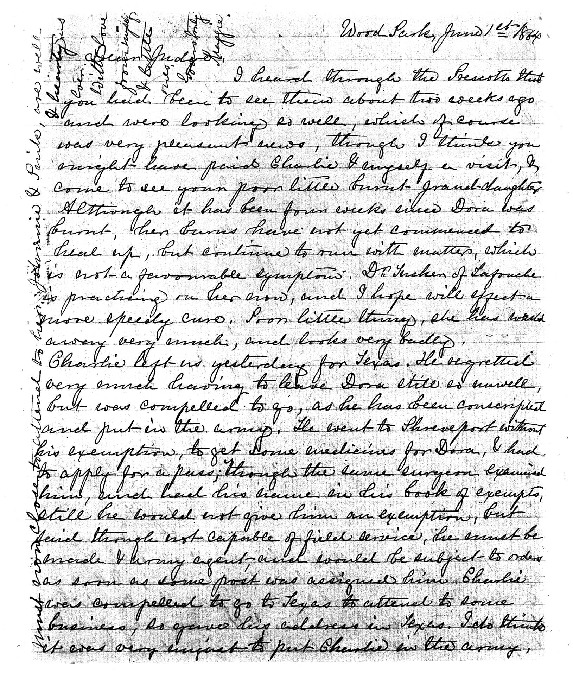 Wood Park, June 1st 1864
Dear Judge,
I heard through the Prescotts that
you had been to see them about two weeks ago
and were looking so well, which of course
was very pleasant news, though I think you
might have paid Charlie & myself a visit, &
come to see your poor little burnt grand-daughter.
Although it has been four weeks since Dora was
burnt, her burns have not yet commenced to
heal up, but continue to run with matter, which
is not a favourable symptom. Dr. of Lafouche
is practising on her now, and I hope will effect a
more speedy cure. Poor little thing, she has
away very much, and looks very badly.
Charlie left us yesterday for Texas. He regretted
very much having to leave Dora still so unwell,
but was compelled to go, as he has been conscripted
and put in the army. He went to Shreveport without
his exemption, to get some medicine for Dora, & had
to apply for a pass; though the same surgeon examined
him, and had his name in his book of exempts,
still he would not give him an exemption, but
said though not capable of field service, he must be
made army agent, and would be subject to orders
as soon as some post was assigned him. Charlie
was compelled to go to Texas to attend to some
business, so gave his address in Texas. I do think
it was very unjust to put Charlie in the army,
must now close & attend to her. & are well
& hearty
With love
from
& little
ones